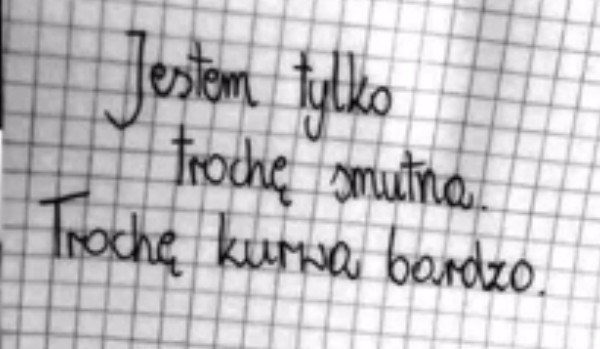 Jestem tylko
trochę smutna.
Trochę kurwa bardzo.